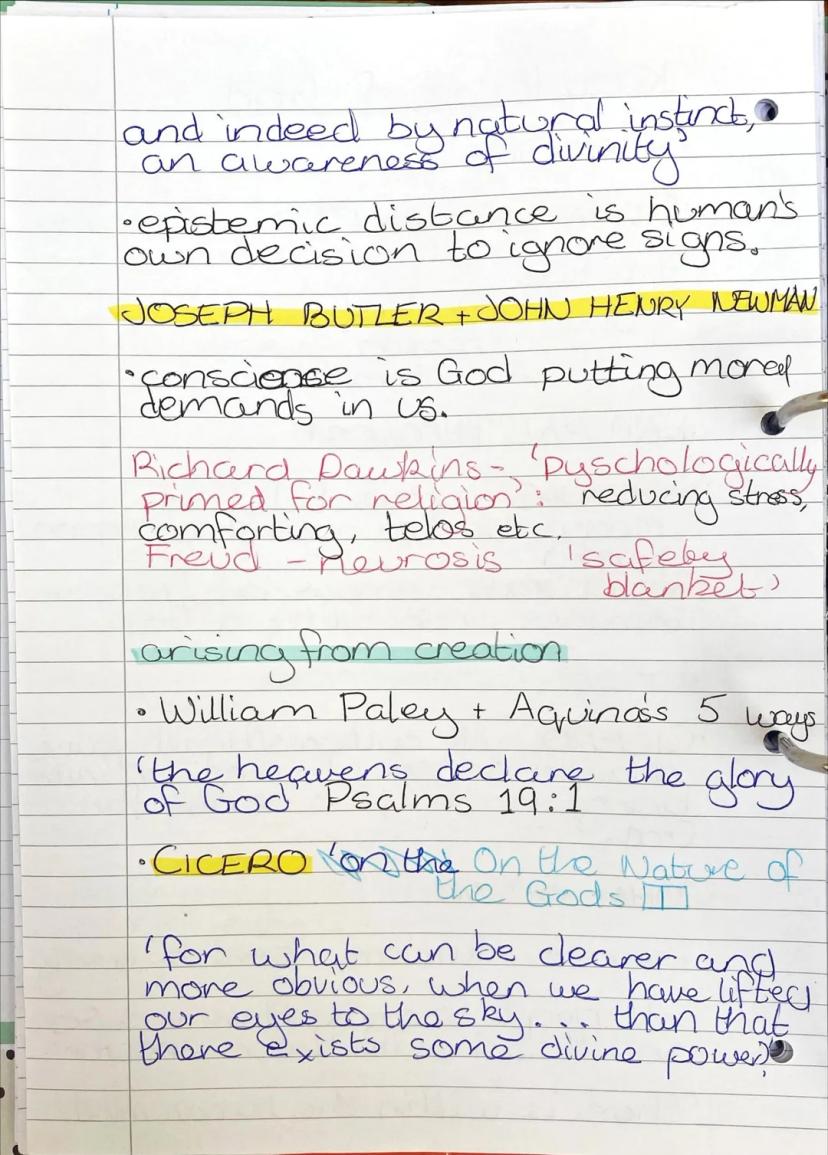 and indeed by natural instinct,
an awareness of divinity'
• epistemic distance is human's
own decision to ignore signs.
JOSEPH BUTLER + JOHN HENRY NEWMAN
• conscience is God putting moral
demands in us.
Richard Dawkins - 'pyschologically
primed for religion': reducing stress,
comforting, telos etc.
Freud - neurosis 'safety
blanket'
arising from creation
• William Paley + Aquinas's 5 ways
'the heavens declare the glory
of God' Psalms 19:1
• CICERO 'on the On the Nature of
the Gods
'for what can be clearer and
more obvious, when we have lifted
our eyes to the sky... than that
there exists some divine power'